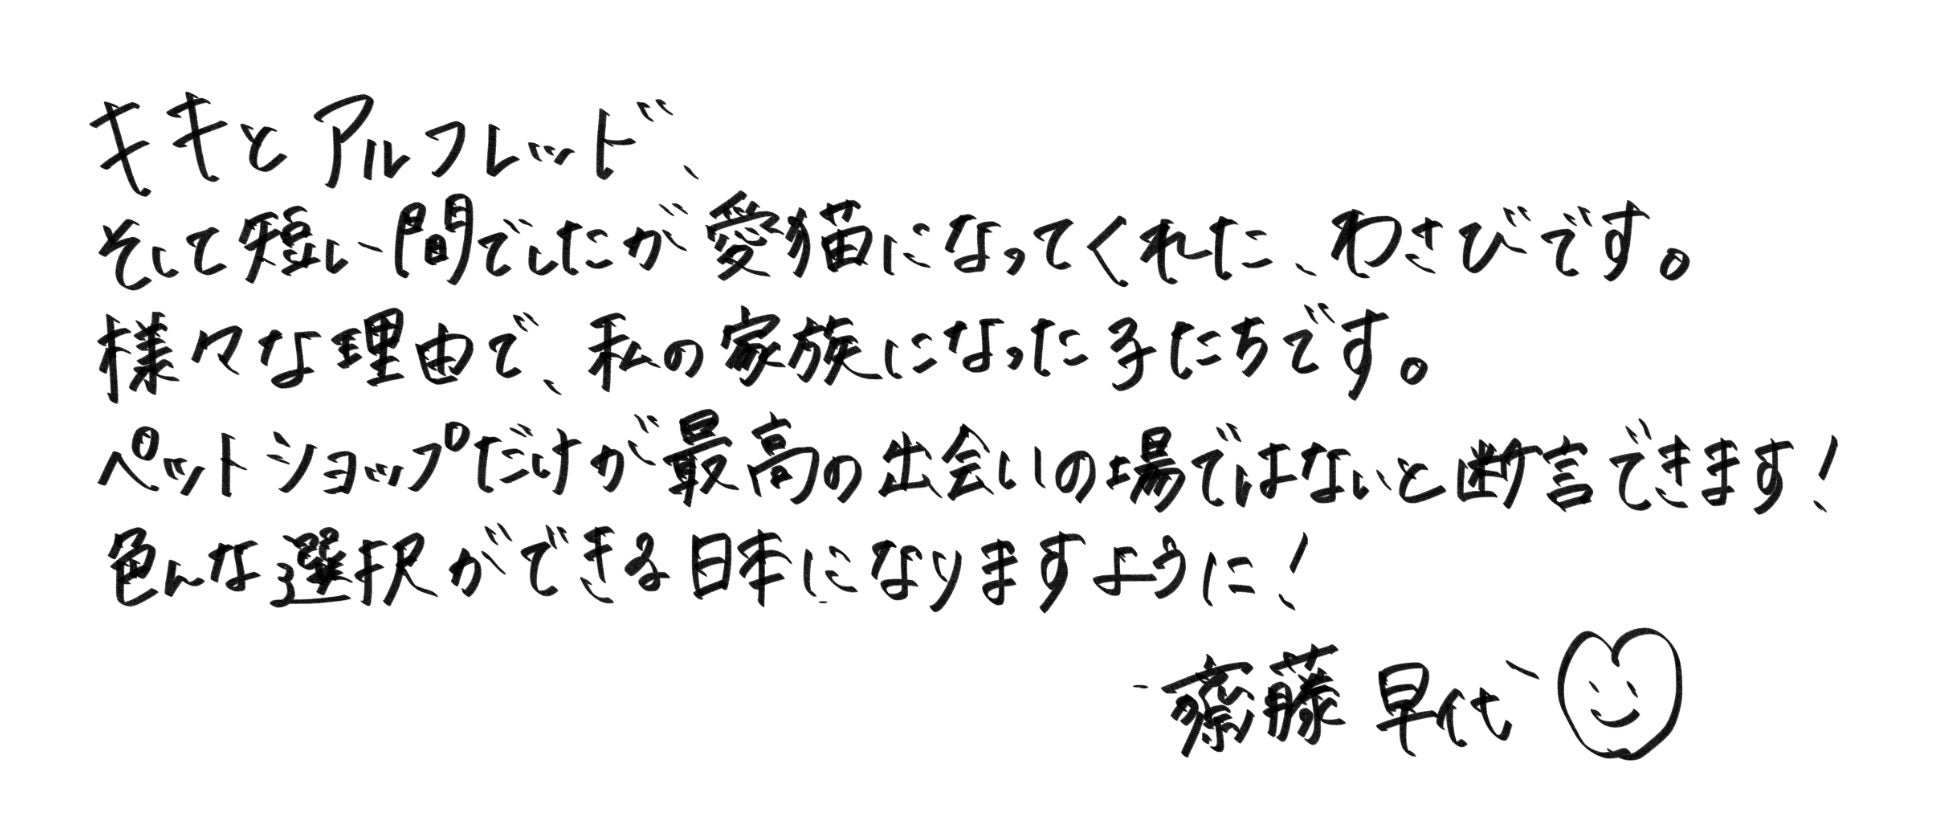 キキとアルフレッド、
そして短い間でしたが愛猫になってくれた、わさびです。
様々な理由で、私の家族になった子たちです。
ペットショップだけが最高の出会いの場ではないと断言できます!
色んな選択ができる日本になりますように!
齋藤 早代